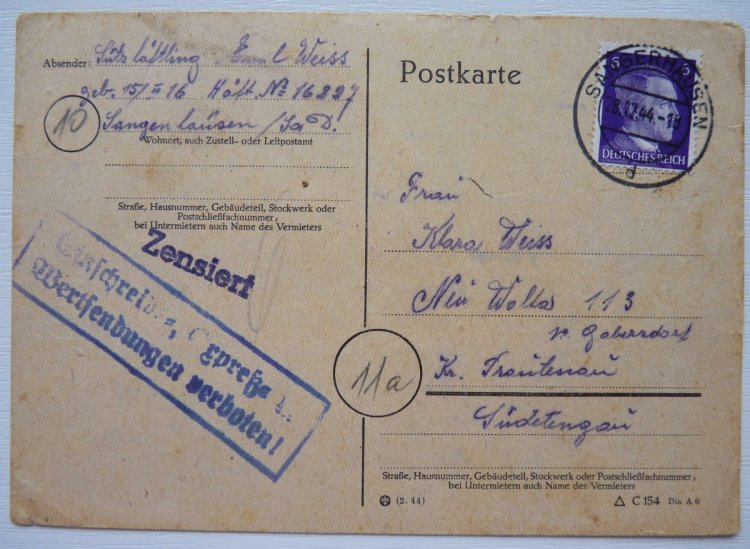 Absender: Sütz häftling Emil Weiss
geb. 15/II 16 Häft. № 16227
10
Sangerhausen /Sa D.
Wohnort, auch Zustell- oder Leitpostamt
Straße, Hausnummer, Gebäudeteil, Stockwerk oder
Postschließfachnummer;
bei Untermietern auch Name des Vermieters
Zensiert
Einschreiben, Expreß= u.
Wertsendungen verboten!
Postkarte
6 6
DEUTSCHES REICH
SANGERHAUSEN
12.44.-18
d
Frau
Klara Weiss
Neu Wolta 113
p. Gabersdorf
11a
Kr. Trautenau
Südetengau
Straße, Hausnummer, Gebäudeteil, Stockwerk oder Postschließfachnummer;
bei Untermietern auch Name des Vermieters
(2. 44)
C 154 Din A 6